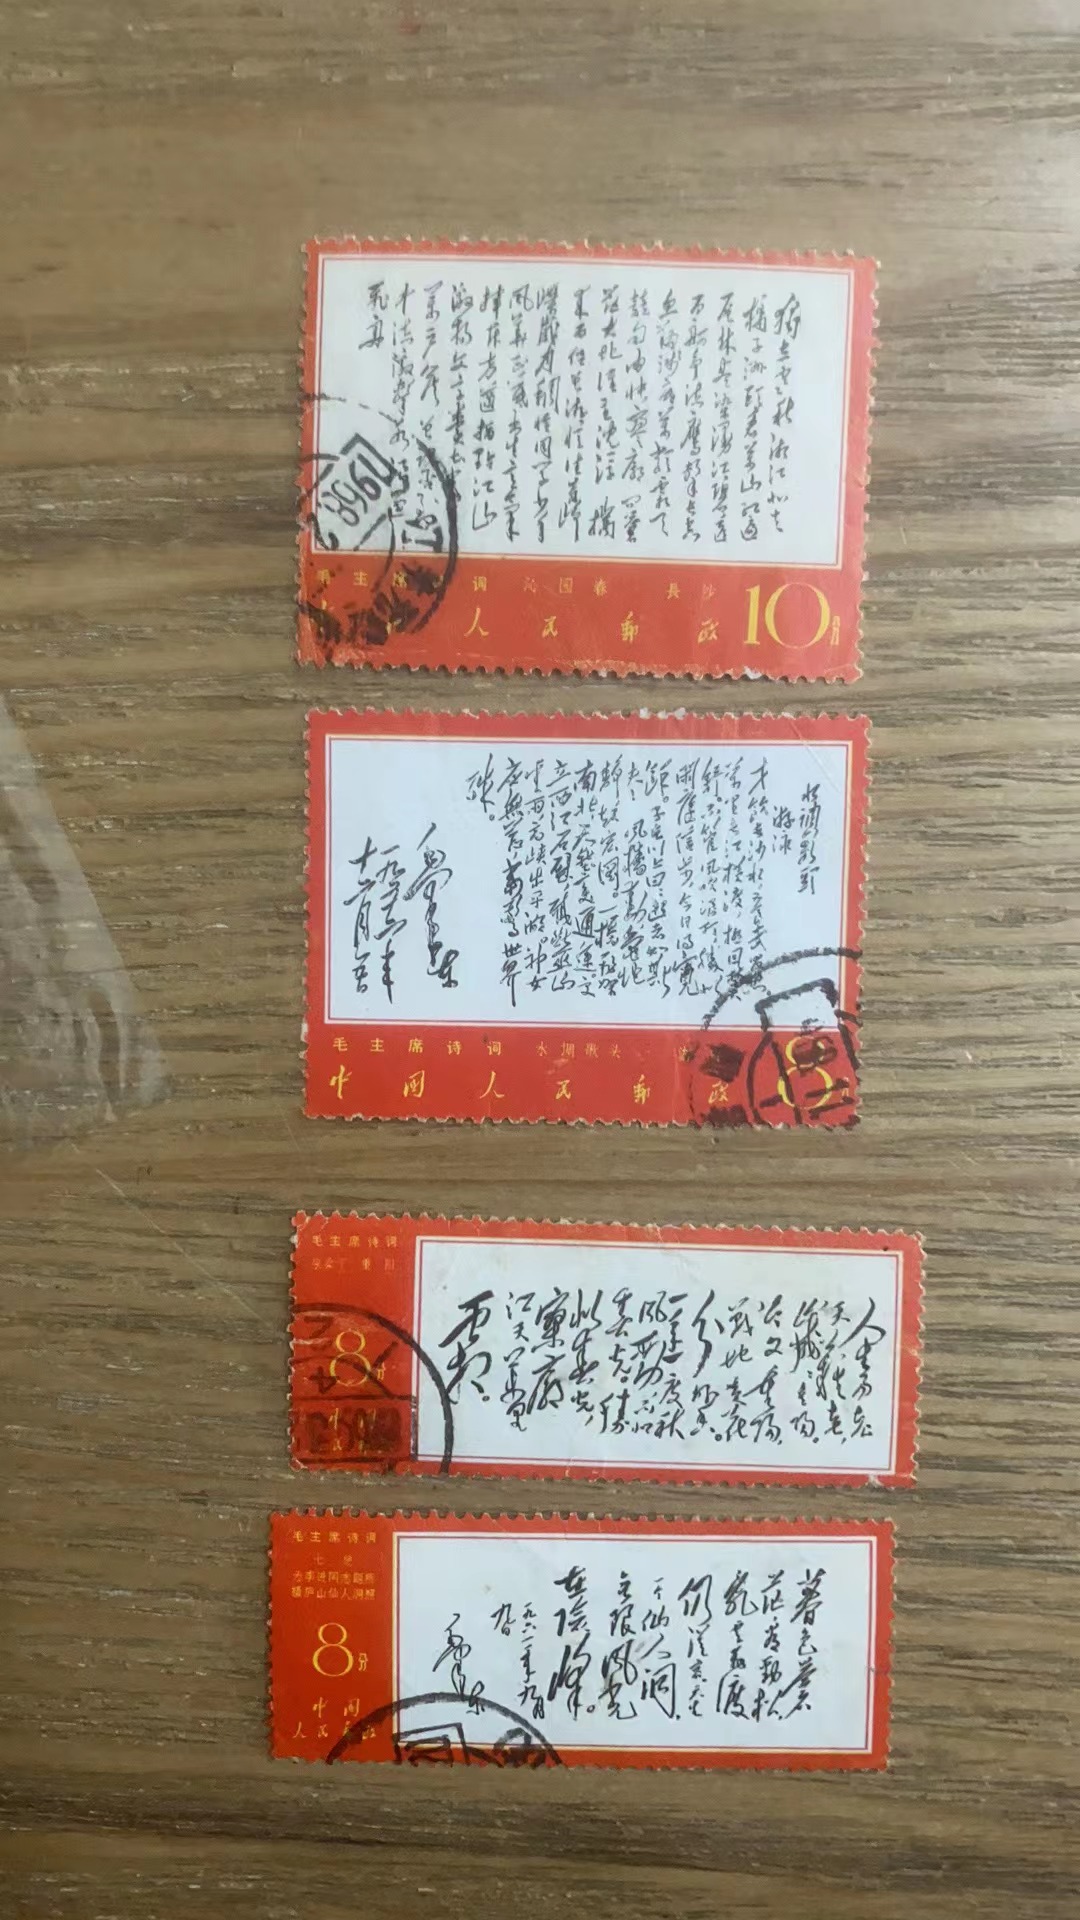 独立寒秋湘江北去
橘子洲头看万山红遍
层林尽染漫江碧透
百舸争流鹰击长空
鱼翔浅底万类霜天
竞自由怅寥廓问苍
茫大地谁主沉浮携
来百侣曾游忆往昔峥
嵘岁月稠恰同学少年
风华正茂书生意气
挥斥方遒指点江山
激扬文字粪土当年
万户侯曾记否到
中流击水浪遏
飞舟
毛主席 词 沁园春 長沙
人民郵政 10分
水调歌头
游泳
才饮长沙水，又食武昌鱼
万里长江横渡，极目楚天
舒。不管风吹浪打，胜似
闲庭信步，今日得宽
馀。子在川上曰：逝者如斯
夫！风樯动，龟蛇
静，起宏图。一桥飞架
南北，天堑变通途。更
立西江石壁，截断巫山
云雨，高峡出平湖。神女
应无恙，当惊世界
殊。
毛泽东
一九五六年
十二月五日
毛主席诗词 水调歌头
中国人民郵政 8
毛主席诗词
采桑子 重阳
8分
人生易老
天难老，
岁岁重阳。
今又重阳，
战地黄花
分外香。
一年一度秋
风劲，不似
春光。胜
似春光，
寥廓
江天万里
霜。
毛主席诗词
七绝
为李进同志题所
摄庐山仙人洞照
8分
中国
人民郵政
暮色苍
茫看劲松，
乱云飞渡
仍从容。天生
一个仙人洞，
无限风光
在险峰。
一九六一年九月
九日
毛泽东